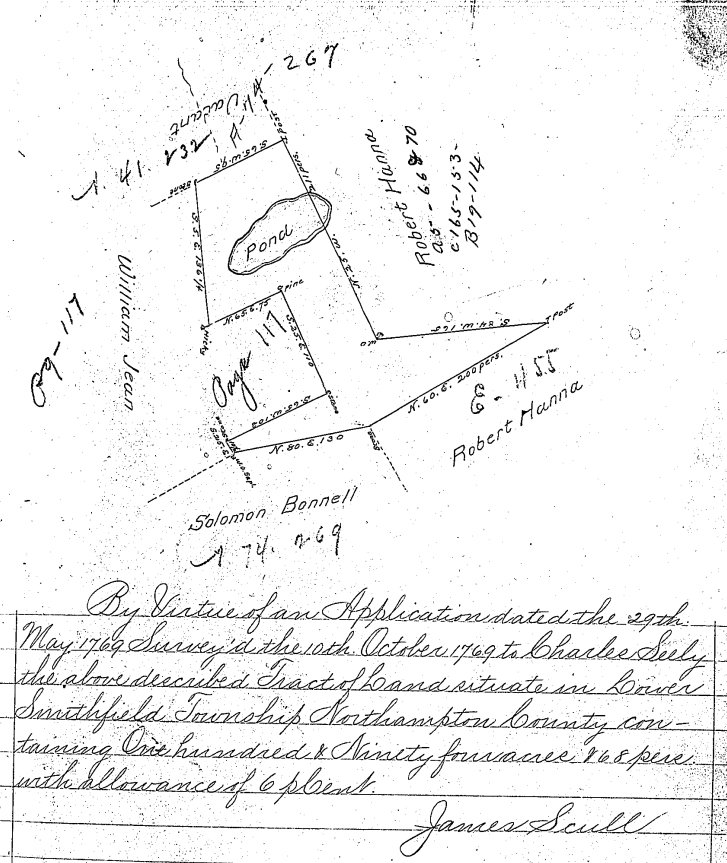 Vacant
N. 41. 232, A-44-267
S.65.W.95
Post
Stone
S.5.E.136¼
Pond
N.25.W.
Robert Hanna
a5-66 & 70
C165-153-
B19-114
William Jean
Pg-117
N.65.E.75
Pine
Page 117
S.25.E.110
S.65.W.102
W.O
S.84.W.165
Post
N.60.E. 200 pers.
E-455
Robert Hanna
N.80.E.130
Solomon Bonnell
N 74. 269
By Virtue of an Application dated the 29th
May 1769 Survey'd the 10th October 1769 to Charles Seely
the above described Tract of Land situate in Lower
Smithfield Township Northampton County con-
taining One hundred & Ninety four acres & 68 pers.
with allowance of 6 p Cent.
James Scull